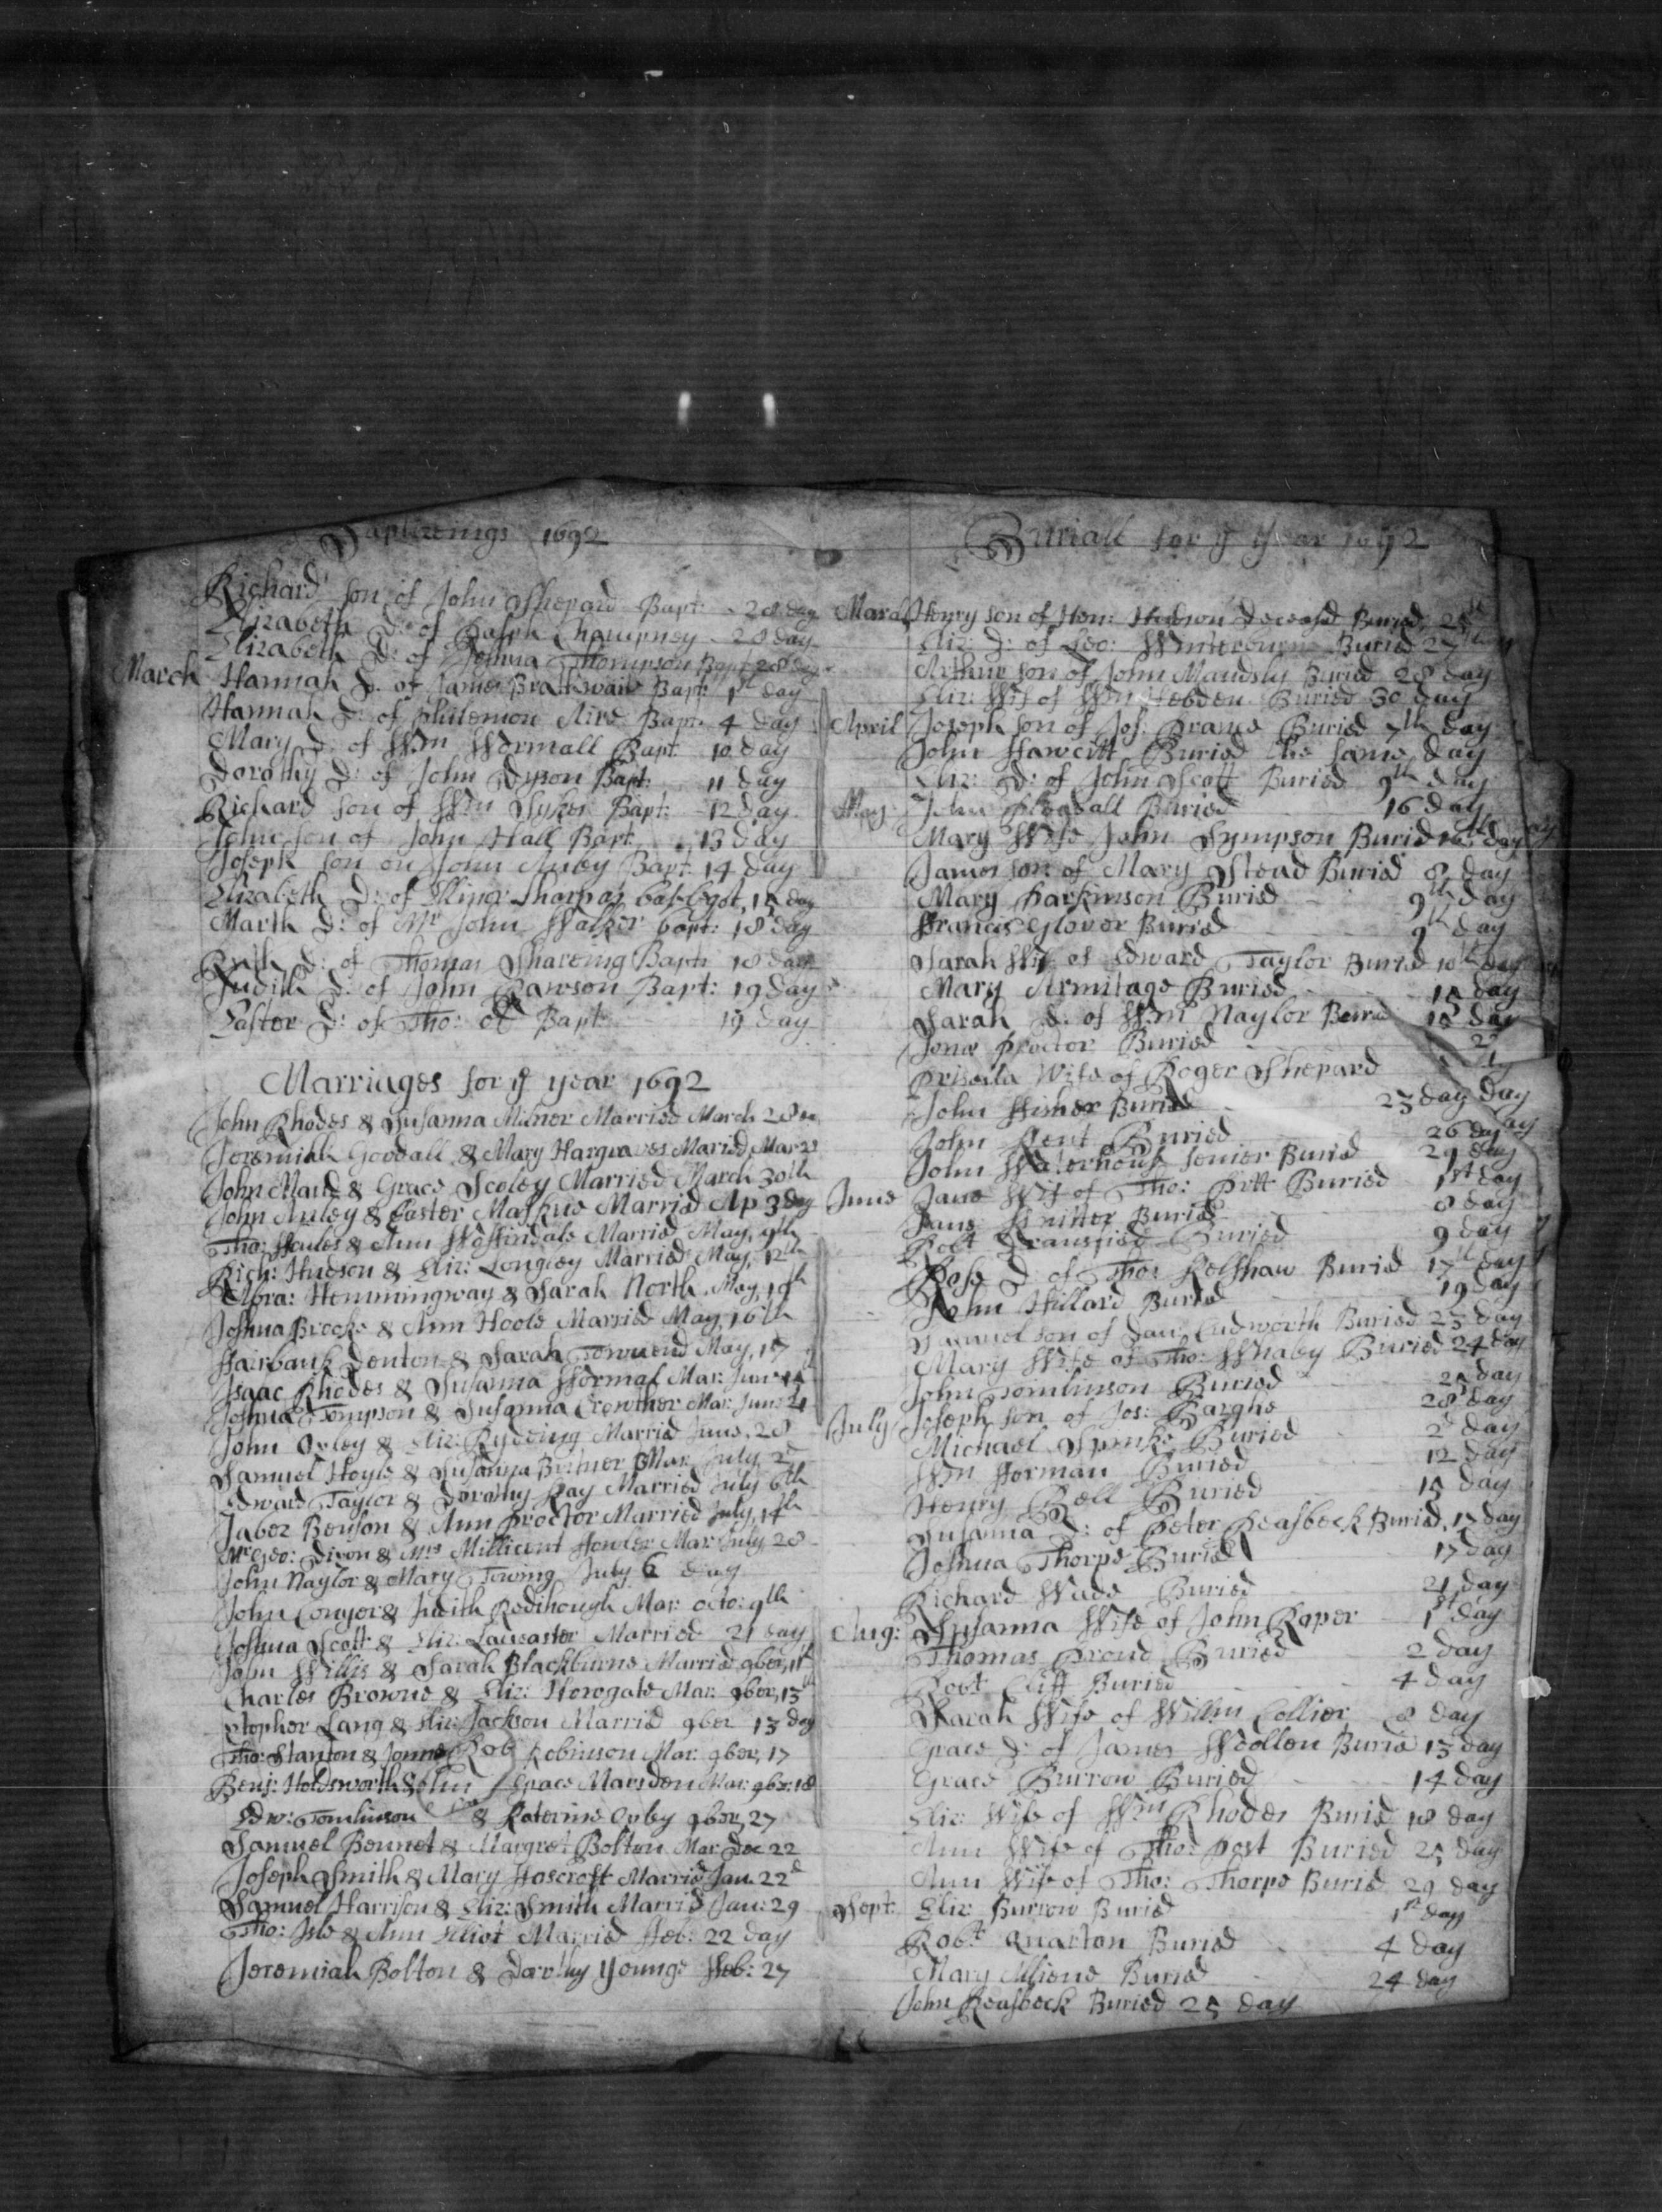 Baptizings 1692
Richard son of John Shepard Bapt: 28 day
Elizabeth D: of Ralph Champney 28 day
Elizabeth D: of Joshua Thompson Bapt 28 day
March Hannah D: of James Brathwait Bapt: 1st day
Hannah D: of philemon Aird Bapt: 4 day
Mary D: of Wm Wormall Bapt 10 day
Dorothy D: of John Dyson Bapt: 11 day
Richard son of Wm Sykes Bapt: 12 day
John son of John Hall Bapt 13 day
Joseph son on John Auley Bapt 14 day
Elizabeth D: of Ellinor Sharp 15 day
Marth D: of Mr John Walker bapt: 18 day
Ruth D: of Thomas Shareing Bapt: 18 day
Judith D: of John Rawson Bapt: 19 day
Easter D: of Tho: Bapt 19 day
Marriages for ye year 1692
John Rhodes & Susanna Milner Married March 28
Jeremiah Goodall & Mary Hargraves Maried Mar
John Maud & Grace Scoley Married March 30th
John Auley & Easter Maskue Married Ap 3 day
Tho: & Ann Waffindale Married May, 9th
Rich: Hudson & Eliz: Longley Married May, 12th
Abra: Hemmingway & Sarah North May, 19th
Joshua Brooke & Ann Hoole Married May, 16th
Fairbank Denton & Sarah Townend May, 17
Isaac Rhodes & Susanna Wormal Mar: Jun:
Joshua Tompson & Susanna Crowther Mar: Jun: 21
John Oxley & Eliz: Rydeing Married June, 28
Samuel Hoyle & Susanna Mar: July, 2d
Edward Taylor & Dorothy Kay Married July 6th
Jabez Benson & Ann Proctor Married July, 14th
Mr Geo: Dixon & Mrs Millicent Fowler Mar July 28
John Naylor & Mary Towing July 6 day
John Conyer & Judith Redihough Mar: octo: 9th
Joshua Scott & Eliz: Lancaster Married 21 day
John Willis & Sarah Blackburne Married 9ber, 1st
Charles Browne & Eliz: Horogate Mar: 9ber, 13th
stopher Lang & Eliz: Jackson Marrid 9ber 13 day
Tho: Stanton & Rob Robinson Mar: 9ber, 17
Benj: Holdsworth & Grace Marsden Mar: 9ber: 18
Edw: Tomlinson & Katerine Oxley 9ber, 27
Samuel Bennet & Margret Bolton Mar: Dec 22
Joseph Smith & Mary Hoscroft Marrid Jan. 22d
Samuel Harrison & Eliz: Smith Marrid Jan: 29
Tho: & Ann Elliot Marrid Feb: 22 day
Jeremiah Bolton & Dorothy Younge Feb: 27
Buriall for ye year 1692
March Henry son of Hen: Hudson Deceased Buried, 25
Eliz: D: of Geo: Winterburne Buried 27th day
Arthur son of John Maudsly Buried 28 day
Eliz: Wif of Wm Hebden Buried 30 day
April Joseph son of Jos: Drame Buried 7th day
John Fawcitt Buried the same day
Eliz: D: of John Scott Buried 9th day
May John Buried 16 day
Mary Wife John Sympson Buried day
James son of Mary Stead Buried 8 day
Mary Parkinson Buried 9th day
Francis Glover Buried 9th day
Sarah Wif of Edward Taylor Buried 10th day
Mary Armitage Buried 15 day
Sarah D: of Wm Naylor Buried 18 day
Jonas Proctor Buried
Prisella Wife of Roger Shepard
John Buried 23 day day
John Kent Buried 26 day
John Waterhouse senior Buried 29 day
June Jane Wif of Tho: Pitt Buried 1st day
Jane Buried 8 day
Robt Transfied Buried 9 day
Rose D: of Tho: Kelshaw Buried 17th day
John Hillard Buried 19 day
son of Cudworth Buried 23 day
Mary Wife of Tho: Whaby Buried 24 day
John Tomlinson Buried 25 day
Joseph son of Jos: Barghe 28 day
July Michael Spinke Buried 2d day
Wm Forman Buried 12 day
Henry Bell Buried 15 day
Susanna D: of Peter Beasbeck Buried, 15 day
Joshua Thorpe Buried 17 day
Richard Wade Buried 21 day
Aug: Susanna Wife of John Roper 1st day
Thomas Proud Buried 2 day
Robt Cliff Buried 4 day
Sarah Wife of Willm Collier 8 day
Grace D: of James Woollen Buried 13 day
Grace Burrow Buried 14 day
Eliz: Wife of Wm Rhodes Buried 18 day
Ann Wife of Tho: Post Buried 25 day
Ann Wife of Tho: Thorpe Buried 29 day
Sept: Eliz: Burrow Buried 1st day
Robt Quarton Buried 4 day
Mary Buried 24 day
John Beasbeck Buried 25 day